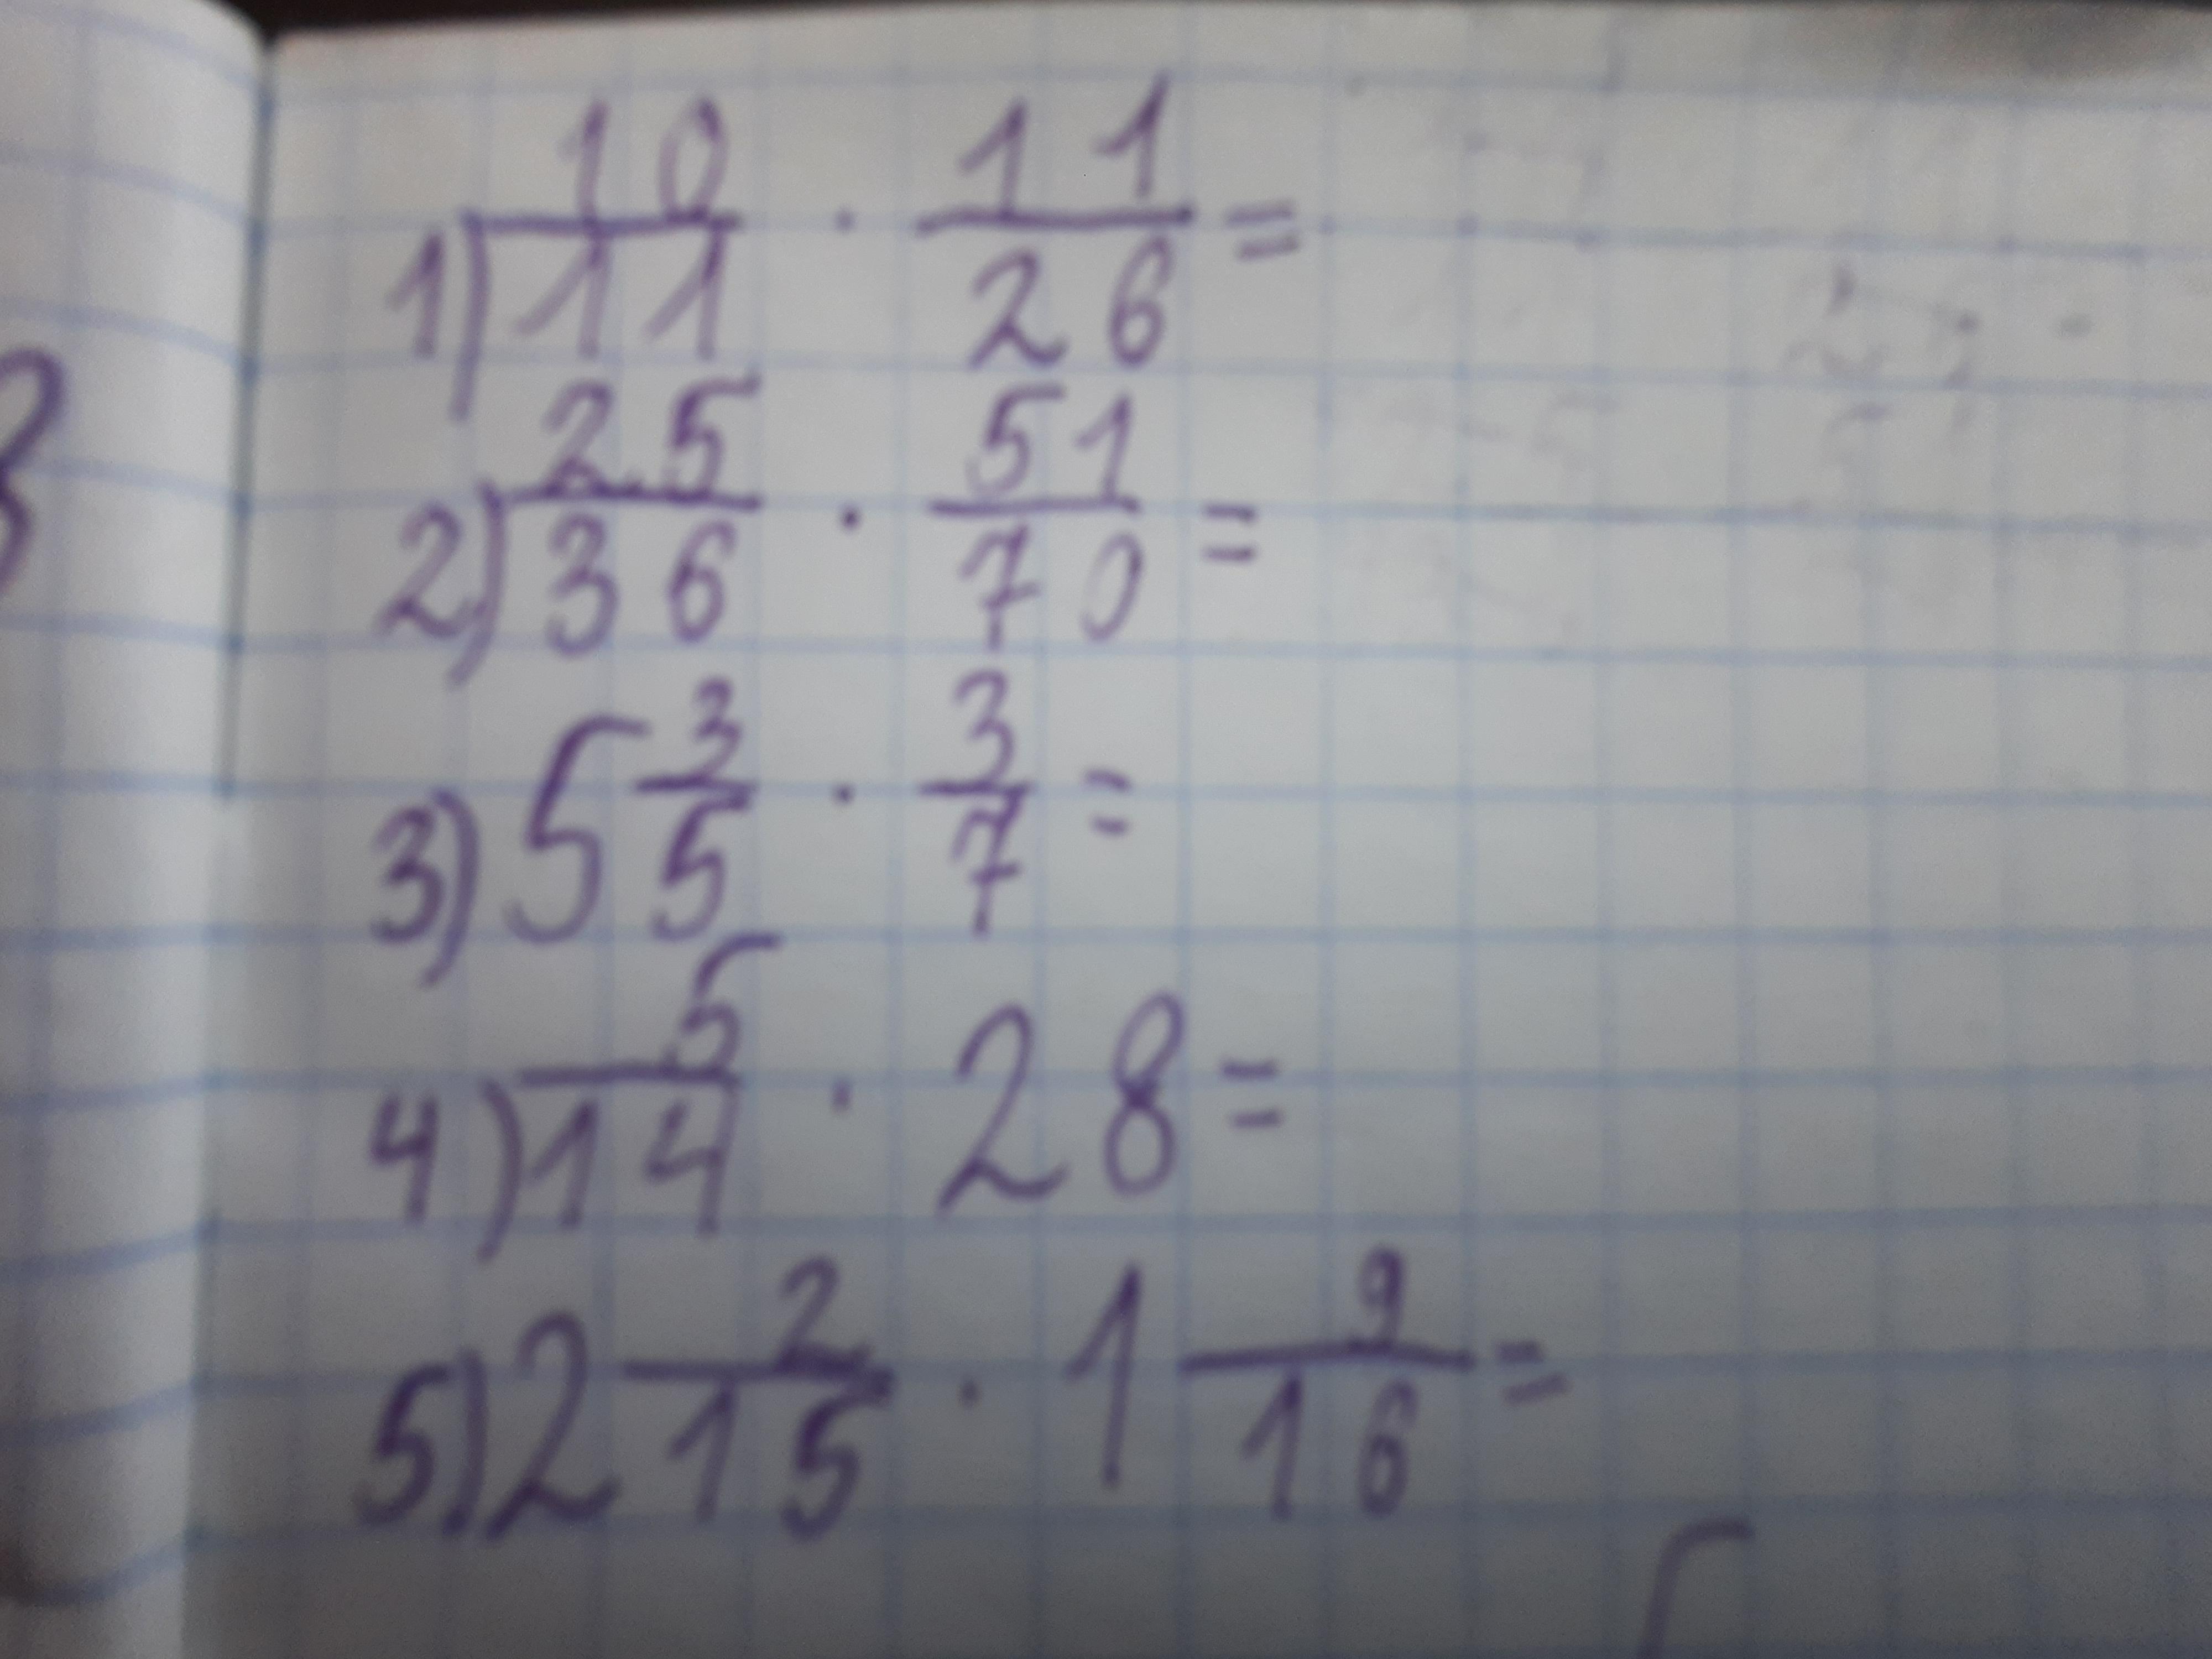 1) 10/11 · 11/26 =
2) 25/36 · 51/70 =
3) 5 3/5 · 3/7 =
4) 5/14 · 28 =
5) 2 2/15 · 1 9/16 =